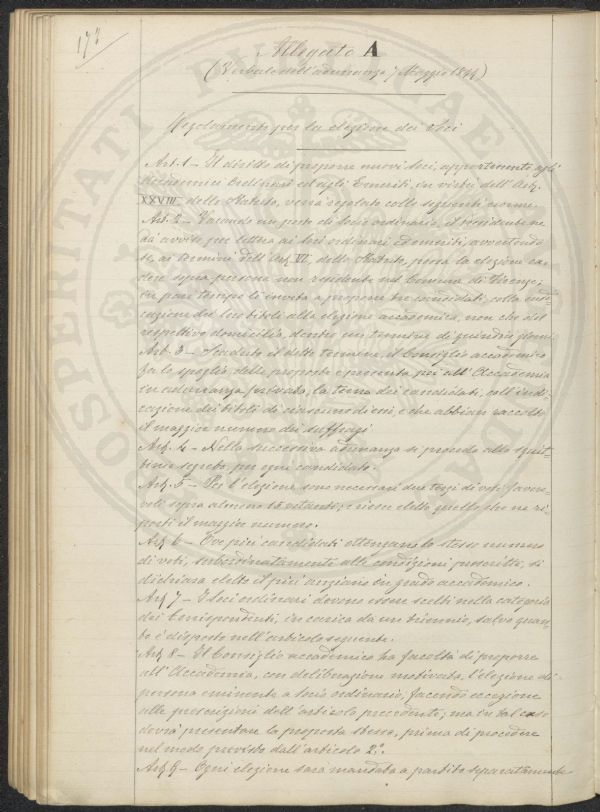 173
Allegato A
(Verbale dell'adunanza 7 Maggio 1899)
Regolamento per la elezione dei Soci
Art. 1 – Il diritto di proporre nuovi Soci, appartenente agli
Accademici Ordinari ed agli Emeriti, in virtù dell'Art.
XXVIII dello Statuto, verrà regolato colle seguenti norme.
Art. 2 – Vacando un posto di Socio ordinario, il Presidente ne
dà avviso per lettera ai Soci ordinari ed emeriti, avvertendo
se, ai termini dell'Art. VI dello Statuto, possa la elezione ca-
dere sopra persona non residente nel Comune di Firenze;
in pari tempo li invita a proporre tre candidati, colla indi-
cazione dei loro titoli alla elezione accademica, non che del
respettivo domicilio, dentro un termine di quindici giorni.
Art. 3 – Scaduto il detto termine, il Consiglio accademico
fa lo spoglio delle proposte e presenta poi all'Accademia
in adunanza privata, la terna dei candidati, coll'indi-
cazione dei titoli di ciascuno di essi, e che abbian raccolto
il maggior numero dei suffragi
Art. 4 – Nella successiva adunanza si procede allo squit-
tinio segreto per ogni candidato.
Art. 5 – Per l'elezione sono necessari due terzi di voti favore-
voli sopra almeno 15 votanti, e riesce eletto quello che ne ri-
porti il maggior numero.
Art. 6 – Ove più candidati ottengano lo stesso numero
di voti, subordinatamente alle condizioni prescritte, si
dichiara eletto il più anziano in grado accademico.
Art. 7 – I Soci ordinari devono essere scelti nella categoria
dei Corrispondenti, in carica da un triennio, salvo quan-
to è disposto nell'articolo seguente.
Art. 8 – Il Consiglio accademico ha facoltà di proporre
all'Accademia, con deliberazione motivata, l'elezione di
persona eminente a Socio ordinario, facendo eccezione
alle prescrizioni dell'articolo precedente; ma in tal caso
dovrà presentare la proposta stessa, prima di procedere
nel modo previsto dall'articolo 2°.
Art. 9 – Ogni elezione sarà mandata a partito separatamente
PROSPERITATI PUBLICAE